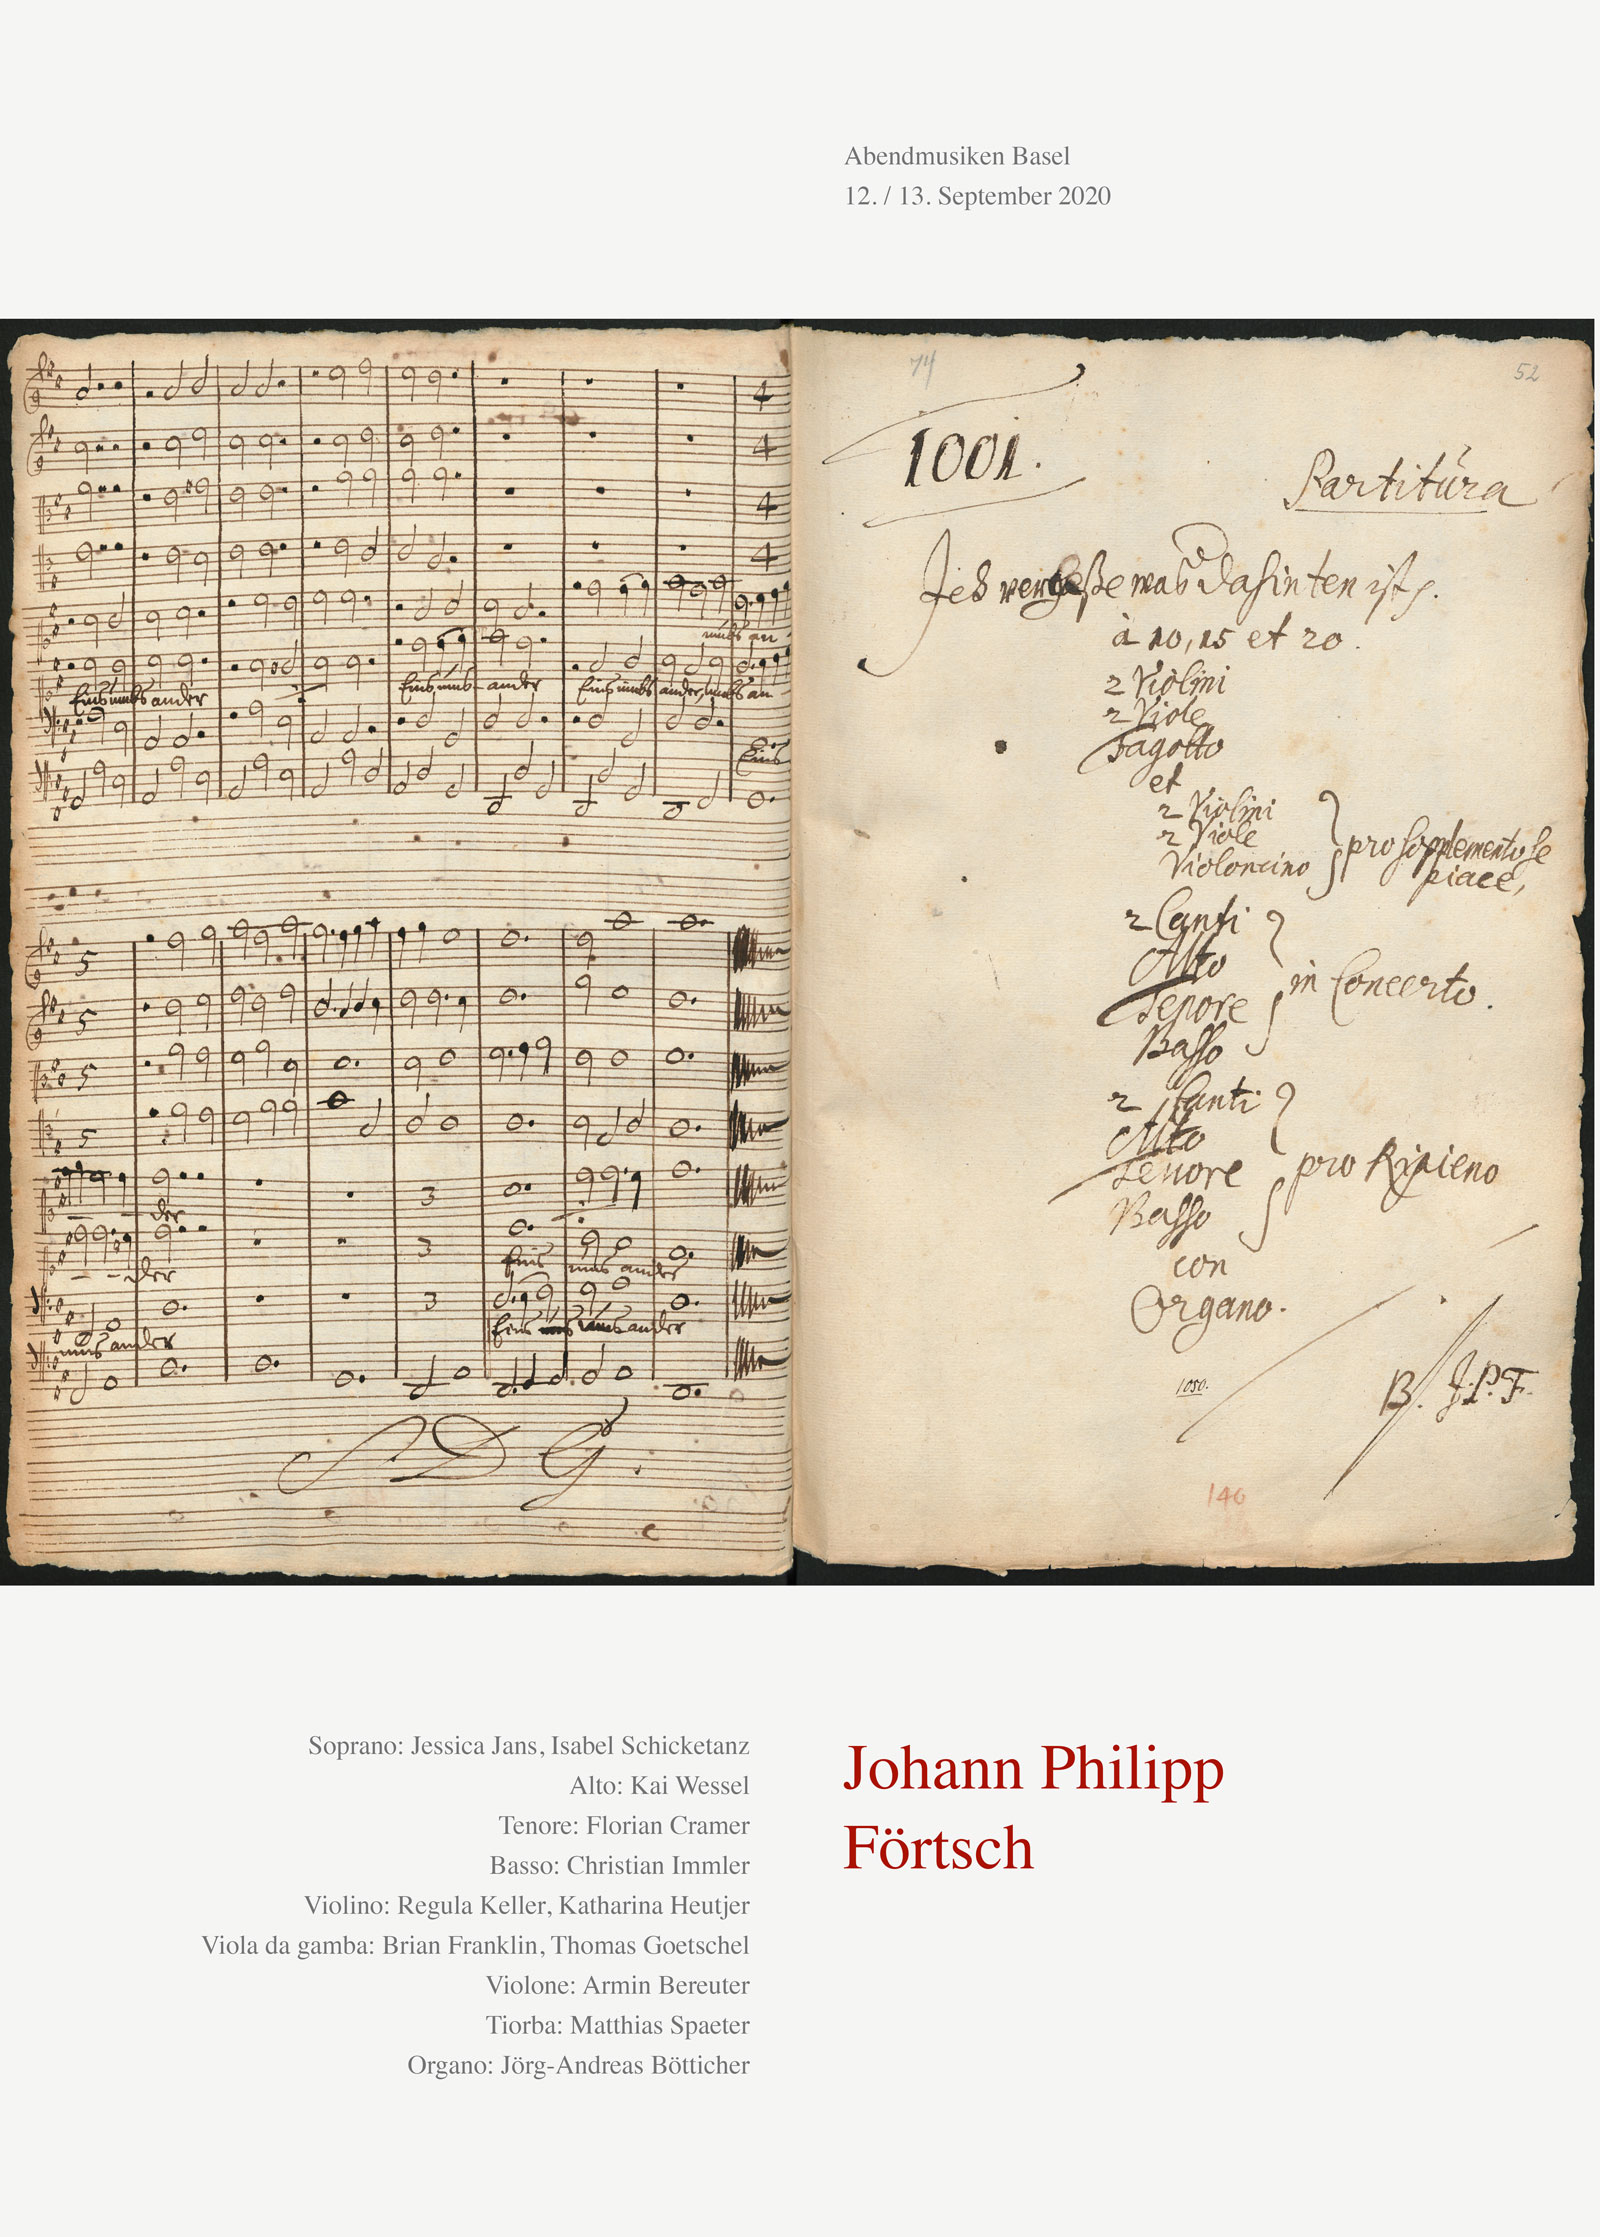 Abendmusiken Basel
12. / 13. September 2020
4
4
4
4
mus an
Eins mus ander
Eins mus ander
Eins mus ander, mus an
Eins
5
5
5
5
3
der
3
der
Eins mus ander
3
mus ander
Eins mus ander
S D G
74
52
1001.
Partitura
Ich vergeße was dahinten ist
à 10, 15 et 20.
2 Violini
2 Viole
Fagotto
et
2 Violini
2 Viole
Violoncino
pro sopplemento se
piace,
2 Canti
Alto
Tenore
Basso
in Concerto.
2 Canti
Alto
Tenore
Basso
pro Ripieno
con
Organo.
1050.
B. J. P. F.
140
Soprano: Jessica Jans, Isabel Schicketanz
Alto: Kai Wessel
Tenore: Florian Cramer
Basso: Christian Immler
Violino: Regula Keller, Katharina Heutjer
Viola da gamba: Brian Franklin, Thomas Goetschel
Violone: Armin Bereuter
Tiorba: Matthias Spaeter
Organo: Jörg-Andreas Bötticher
Johann Philipp
Förtsch